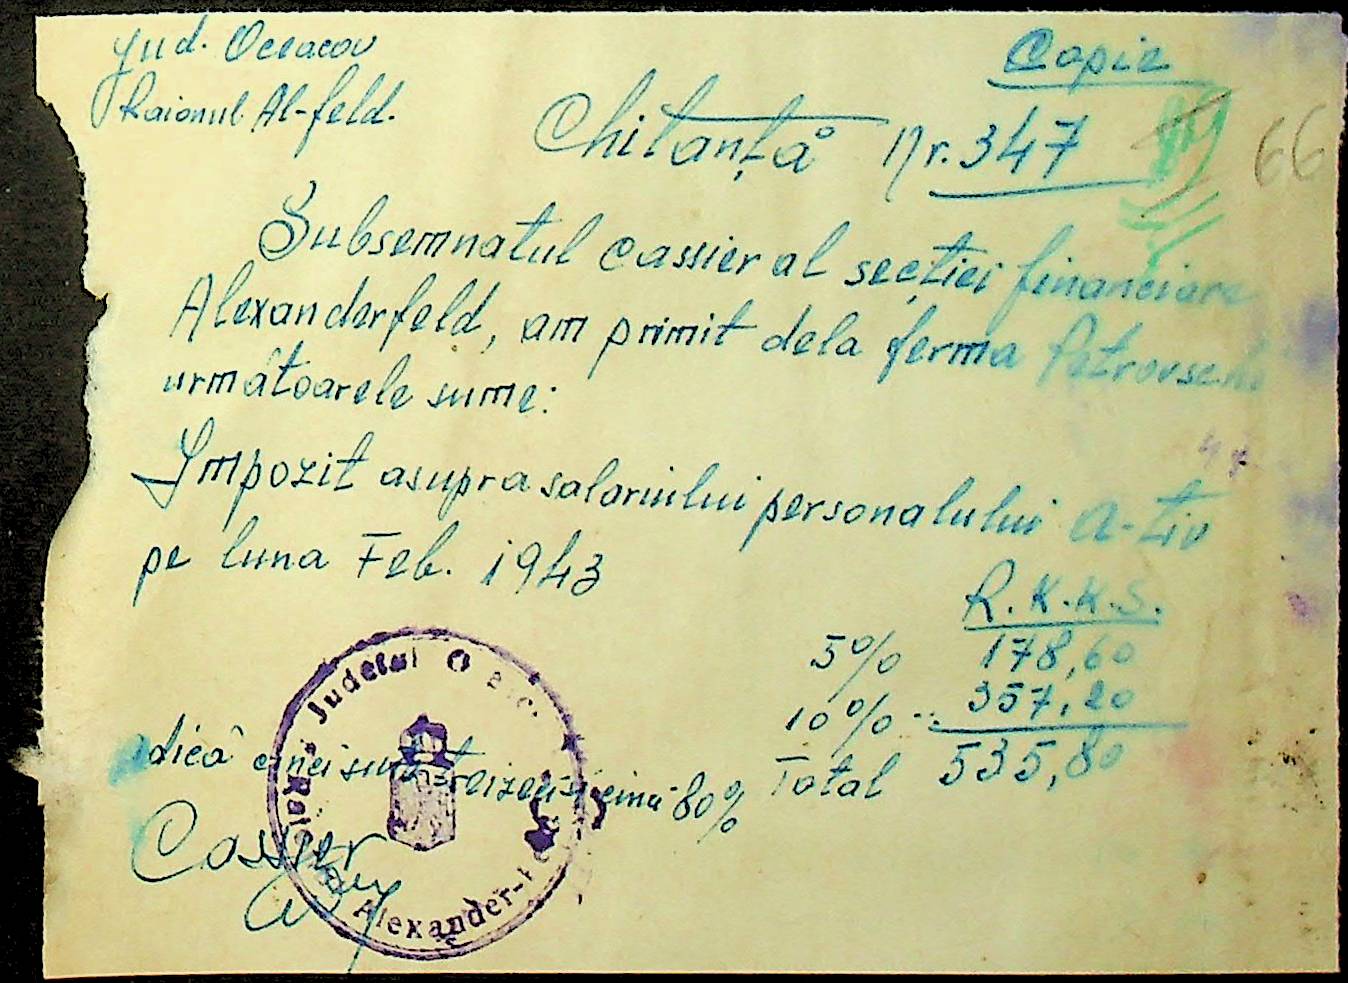 Jud. Oceacov
Raionul Al-feld.
Copie
Chitanță Nr. 347
66
Subsemnatul cassier al secției financiare
Alexanderfeld, am primit dela ferma
următoarele sume:
Impozit asupra salariului personalului a-tiv
pe luna Feb. 1943
R.K.K.S.
5% 178,60
10% 357,20
Total 535,80
adică cinci sute treizeci și cinci 80%
Cassier
Județul
Alexander-